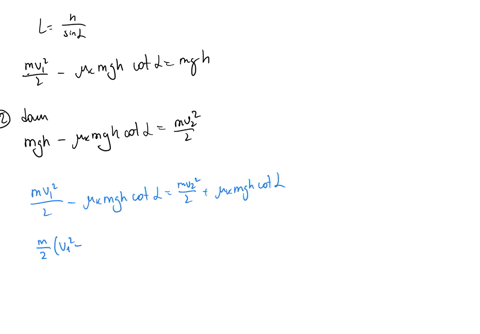 L = h / sin L
mv₁²/2 - μₖ mgh cot L = mgh
② dam
mgh - μₖ mgh cot L = mv₂²/2
mv₁²/2 - μₖ mgh cot L = mv₂²/2 + μₖ mgh cot L
m/2 (v₁² -